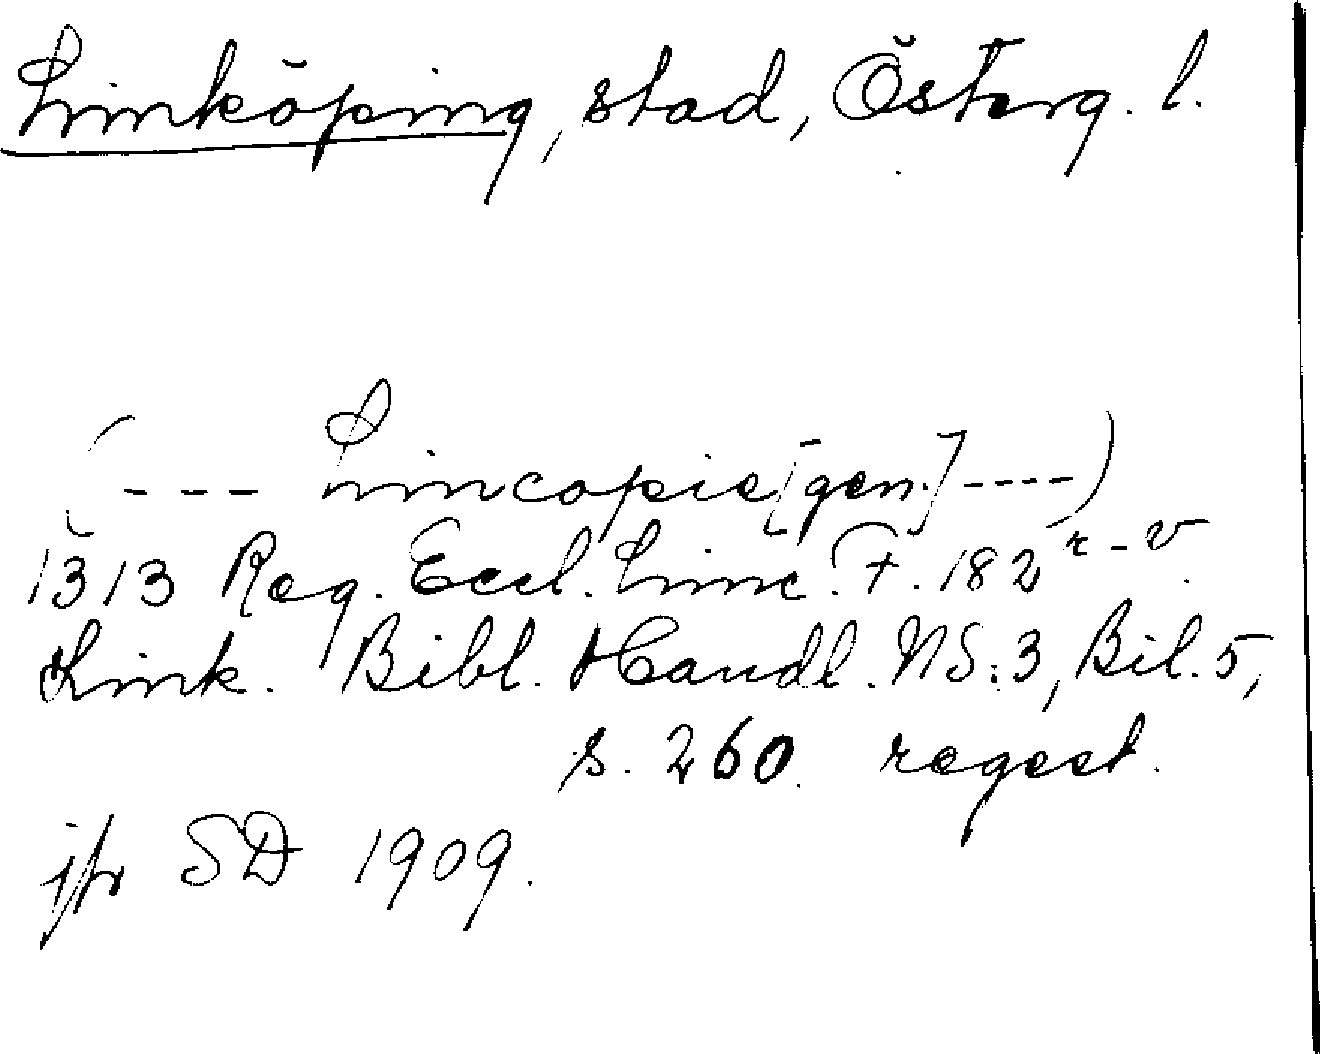 Linköping, stad, Österg. l.
(--- Lincopie [gen.] ----)
1313 Reg. Eccl. Linc. F. 182 r-v.
Link. Bibl. Handl. NS:3, Bil. 5,
s. 260. regest.
jfr SD 1909.